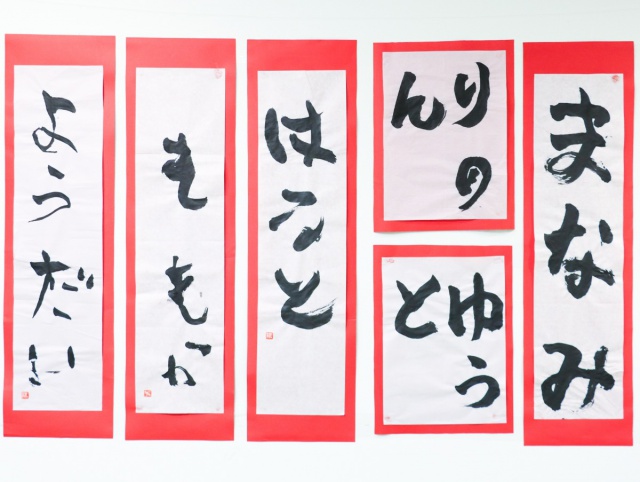 まなみ
りの
ん
ゆう
と
はると
ももか
ようだい